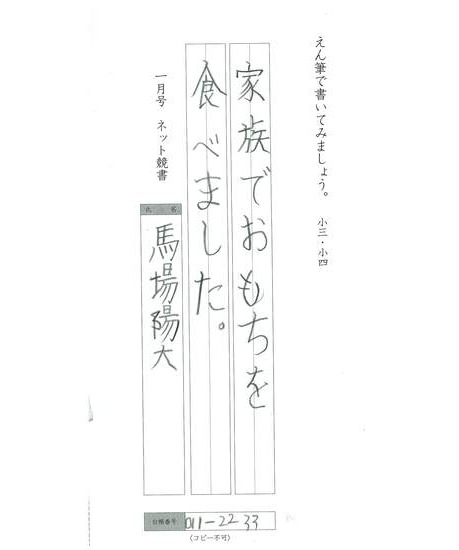 えん筆で書いてみましょう。 小三・小四
家族でおもちを
食べました。
一月号 ネット競書
氏名
馬場陽大
台帳番号 011-2233
(コピー不可)